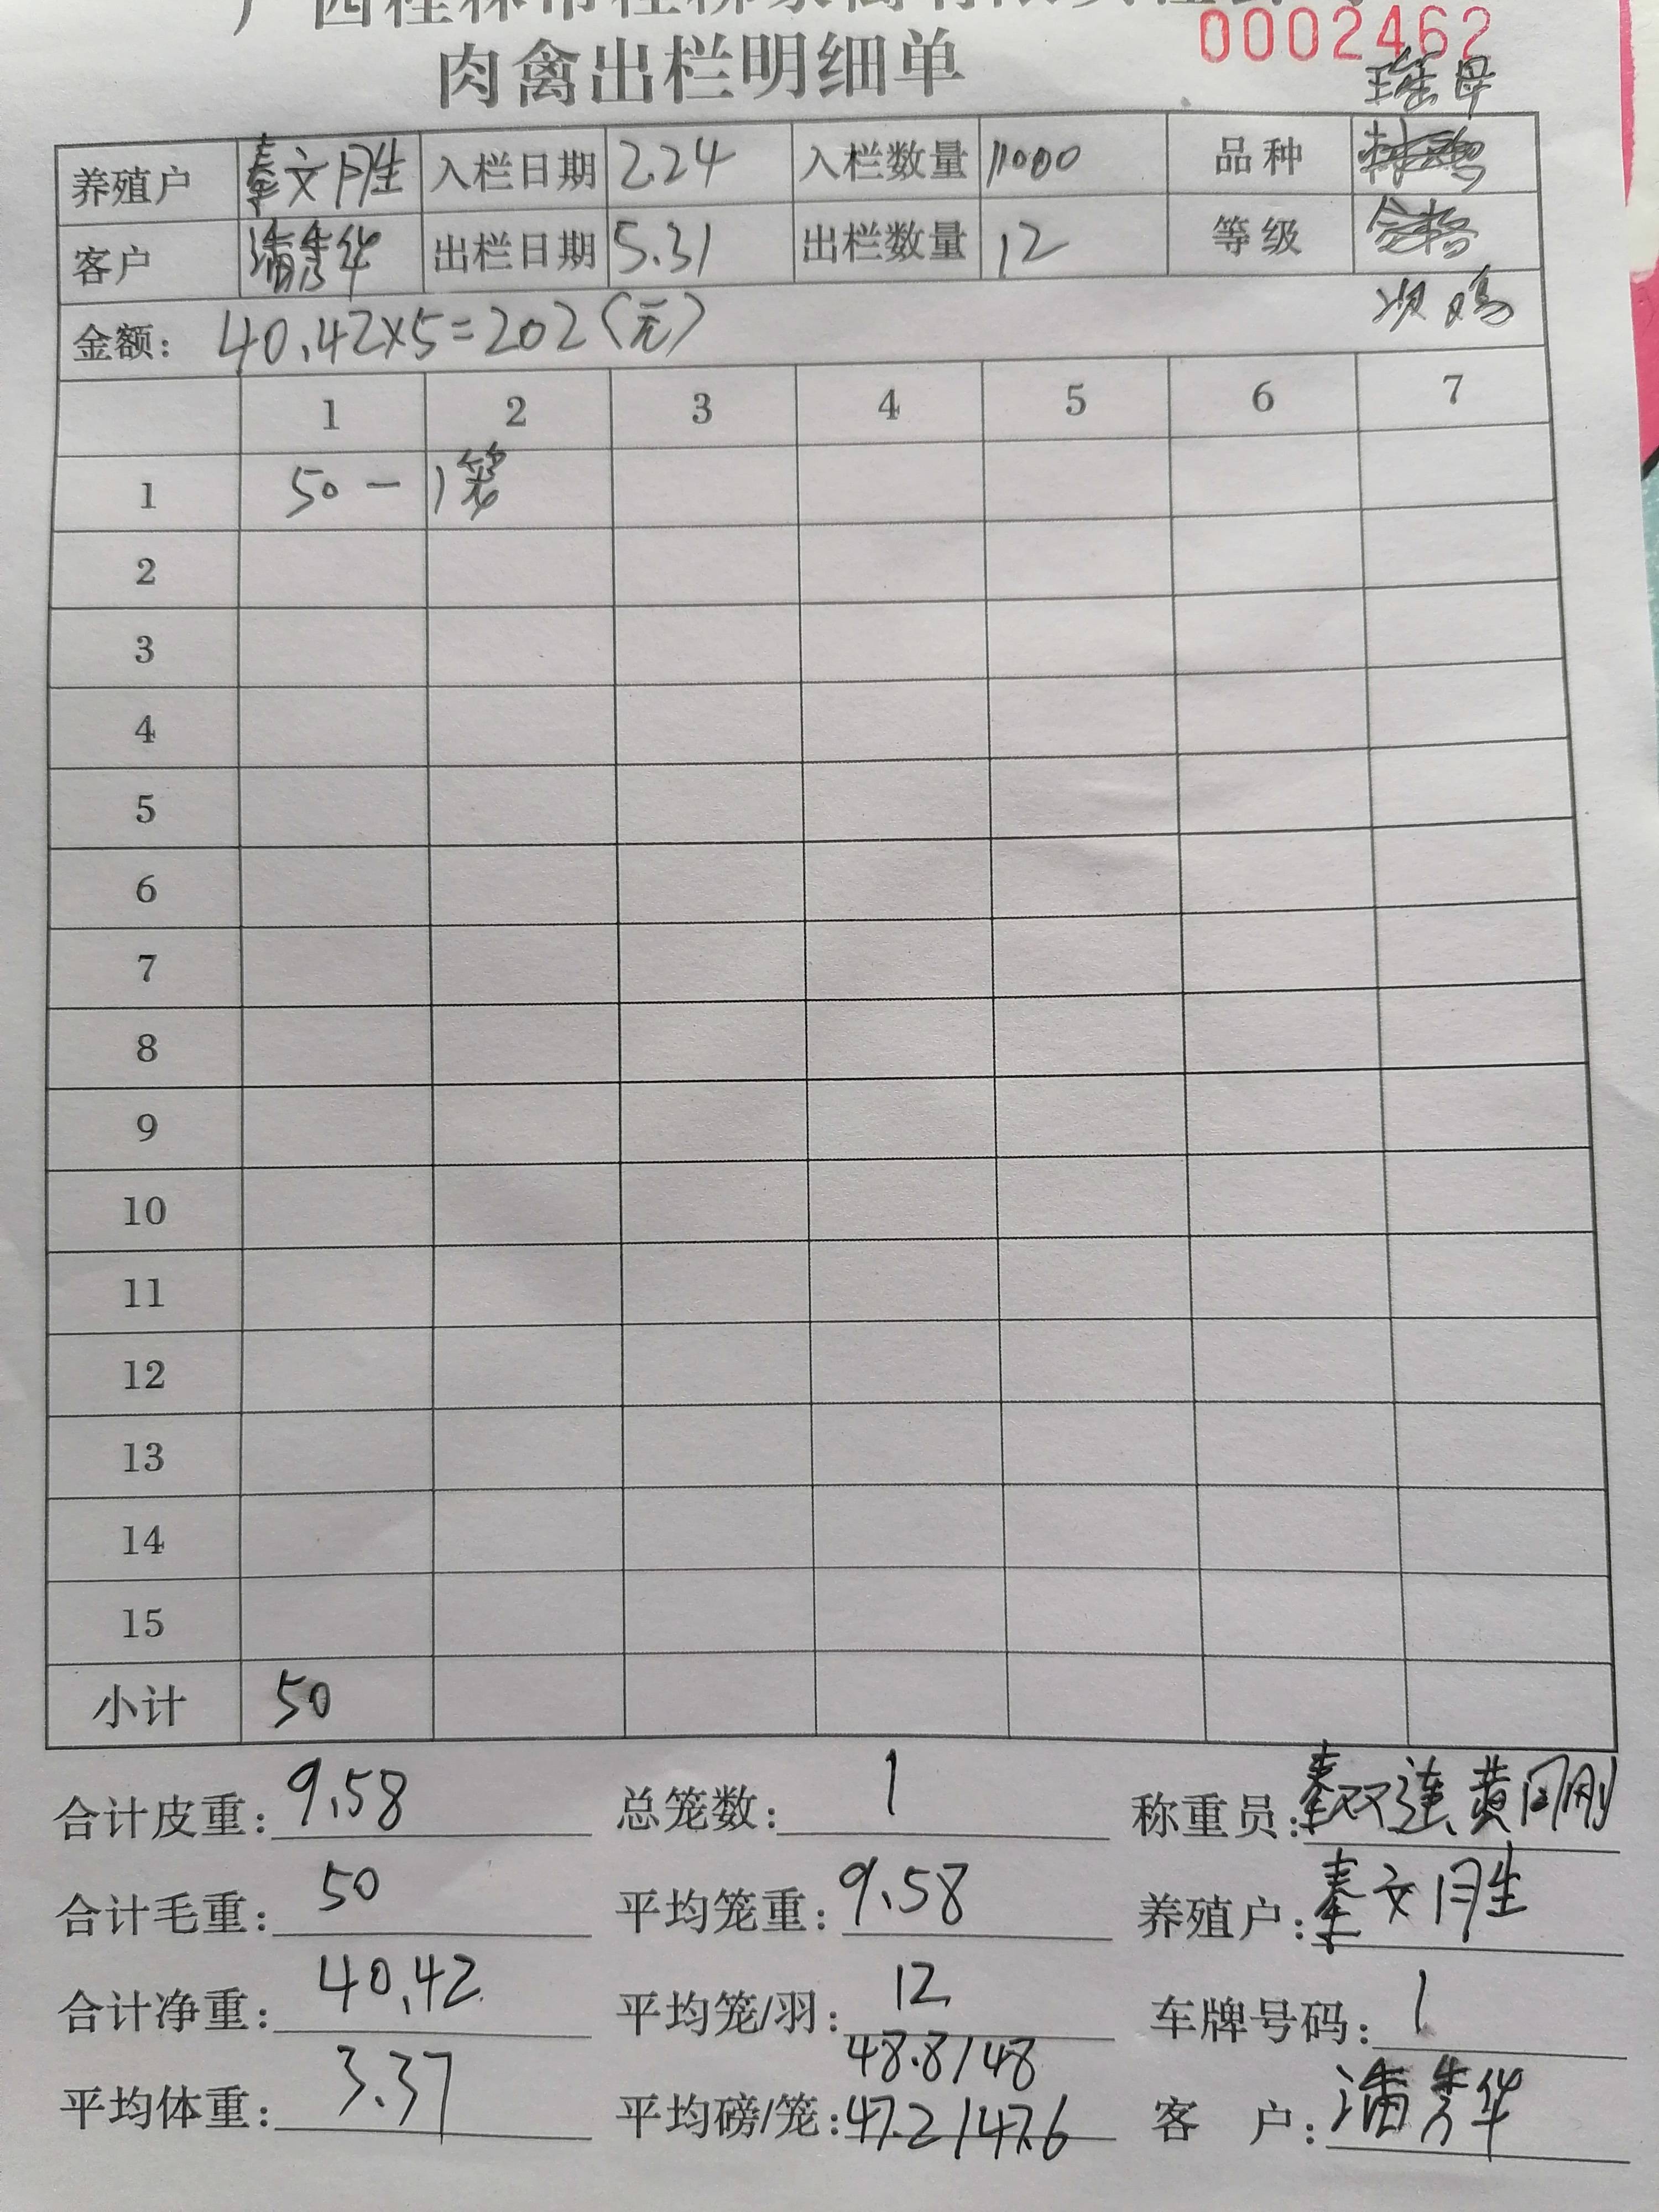 0002462
肉禽出栏明细单
瑶母
养殖户 秦文胜 入栏日期 2.24 入栏数量 11000 品种
客户 潘秀华 出栏日期 5.31 出栏数量 12 等级 合格
次鸡
金额: 40.42×5=202(元)
1 2 3 4 5 6 7
1 50 - 1笼
2
3
4
5
6
7
8
9
10
11
12
13
14
15
小计 50
合计皮重: 9.58 总笼数: 1 称重员: 秦双连 黄刚
合计毛重: 50 平均笼重: 9.58 养殖户: 秦文胜
合计净重: 40.42 平均笼/羽: 12 车牌号码: 1
48.8/48
平均体重: 3.37 平均磅/笼: 47.2/47.6 客 户: 潘秀华